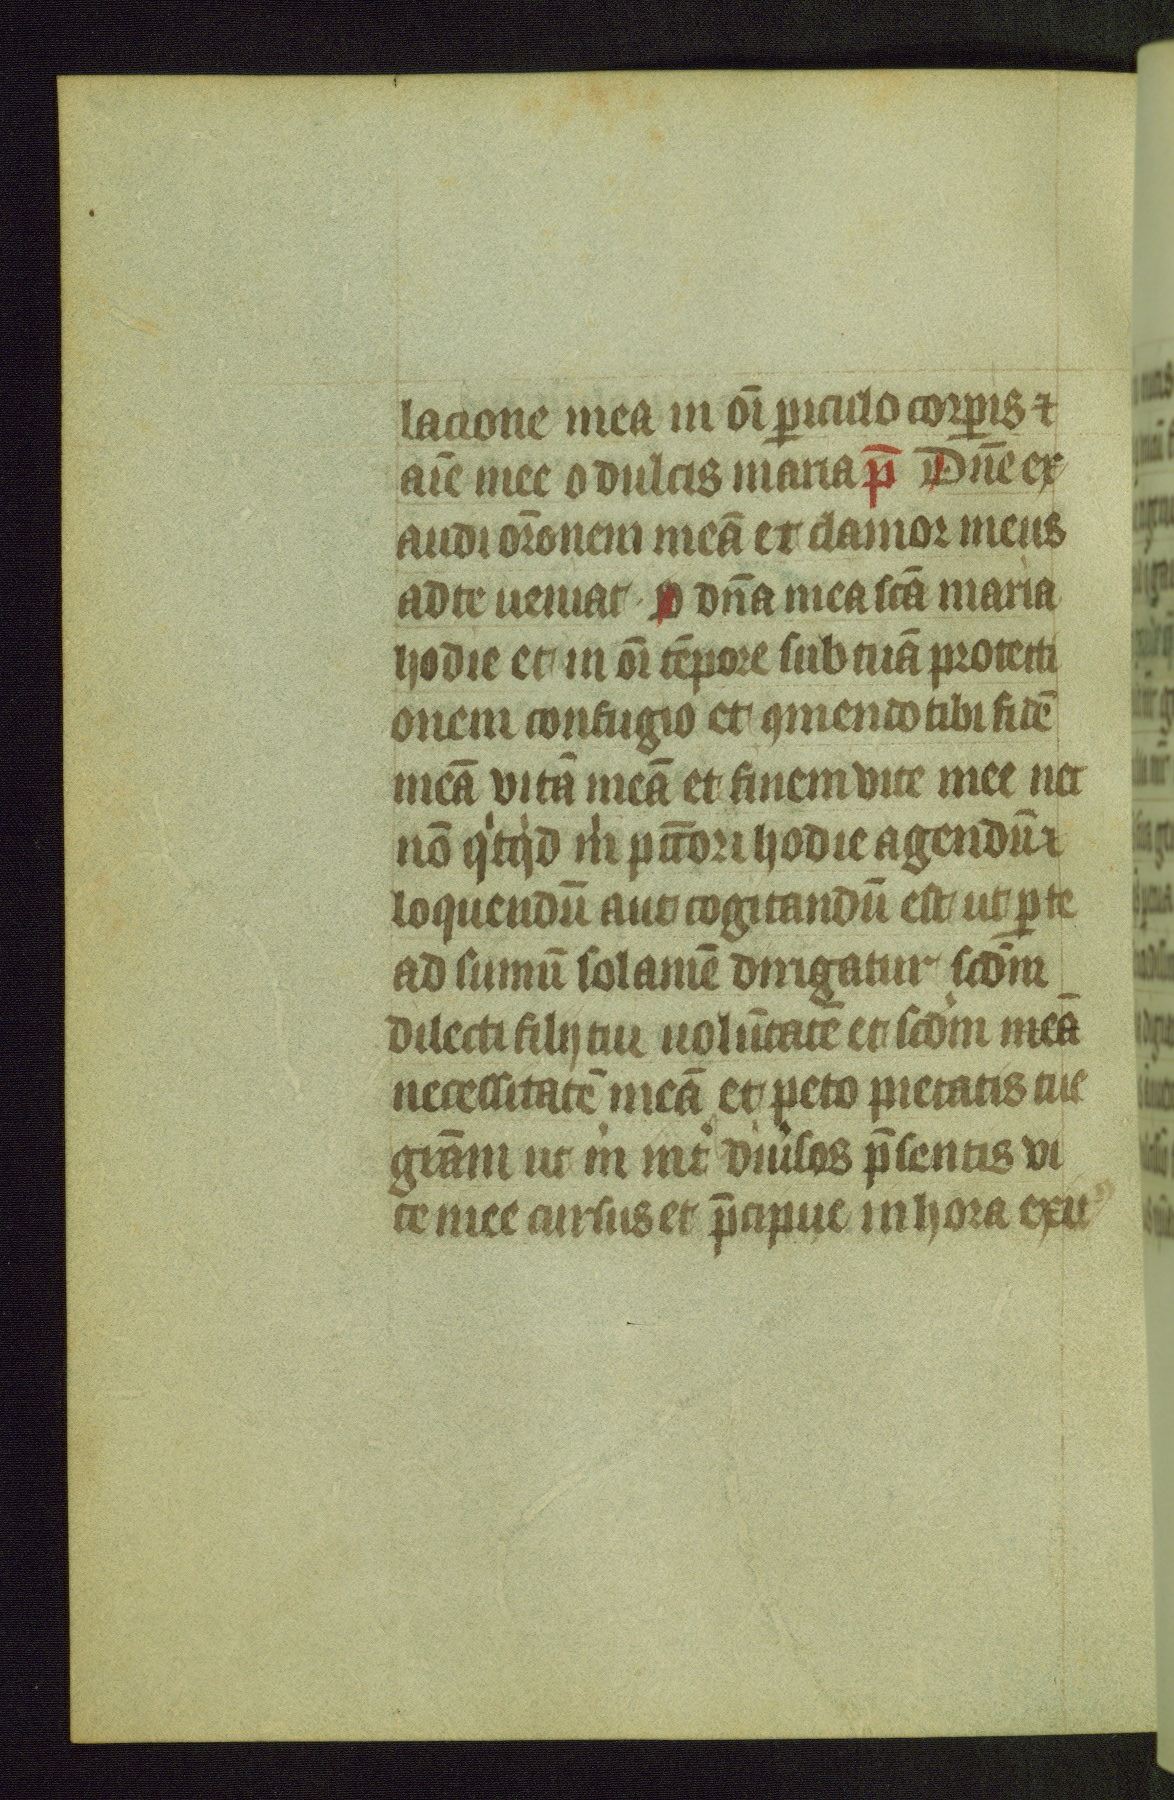 lacione mea in oī ꝑiculo corꝑis ⁊
aīe mee o dulcis maria p̄ Dn̄e ex
audi orōnem meā et clamor meus
ad te ueniat O dn̄a mea scā maria
hodie et in oī tēpore sub tuā protecti
onem confugio et ꝯmendo tibi fidē
meā vitā meā et finem vite mee nec
nō qͥcqͥd mͥ pcc̄ori hodie agendū ⁊
loquendū aut cogitandū est ut ꝑ te
ad sumū solamē dirigatur scd̄m
dilecti filij tui uolūtatē et scd̄m meā
necessitatē meā et peto pietatis tue
grām ut mͥ int͛ diūsos p̄sentis vi
te mee cursus et p̄cipue in hora exit